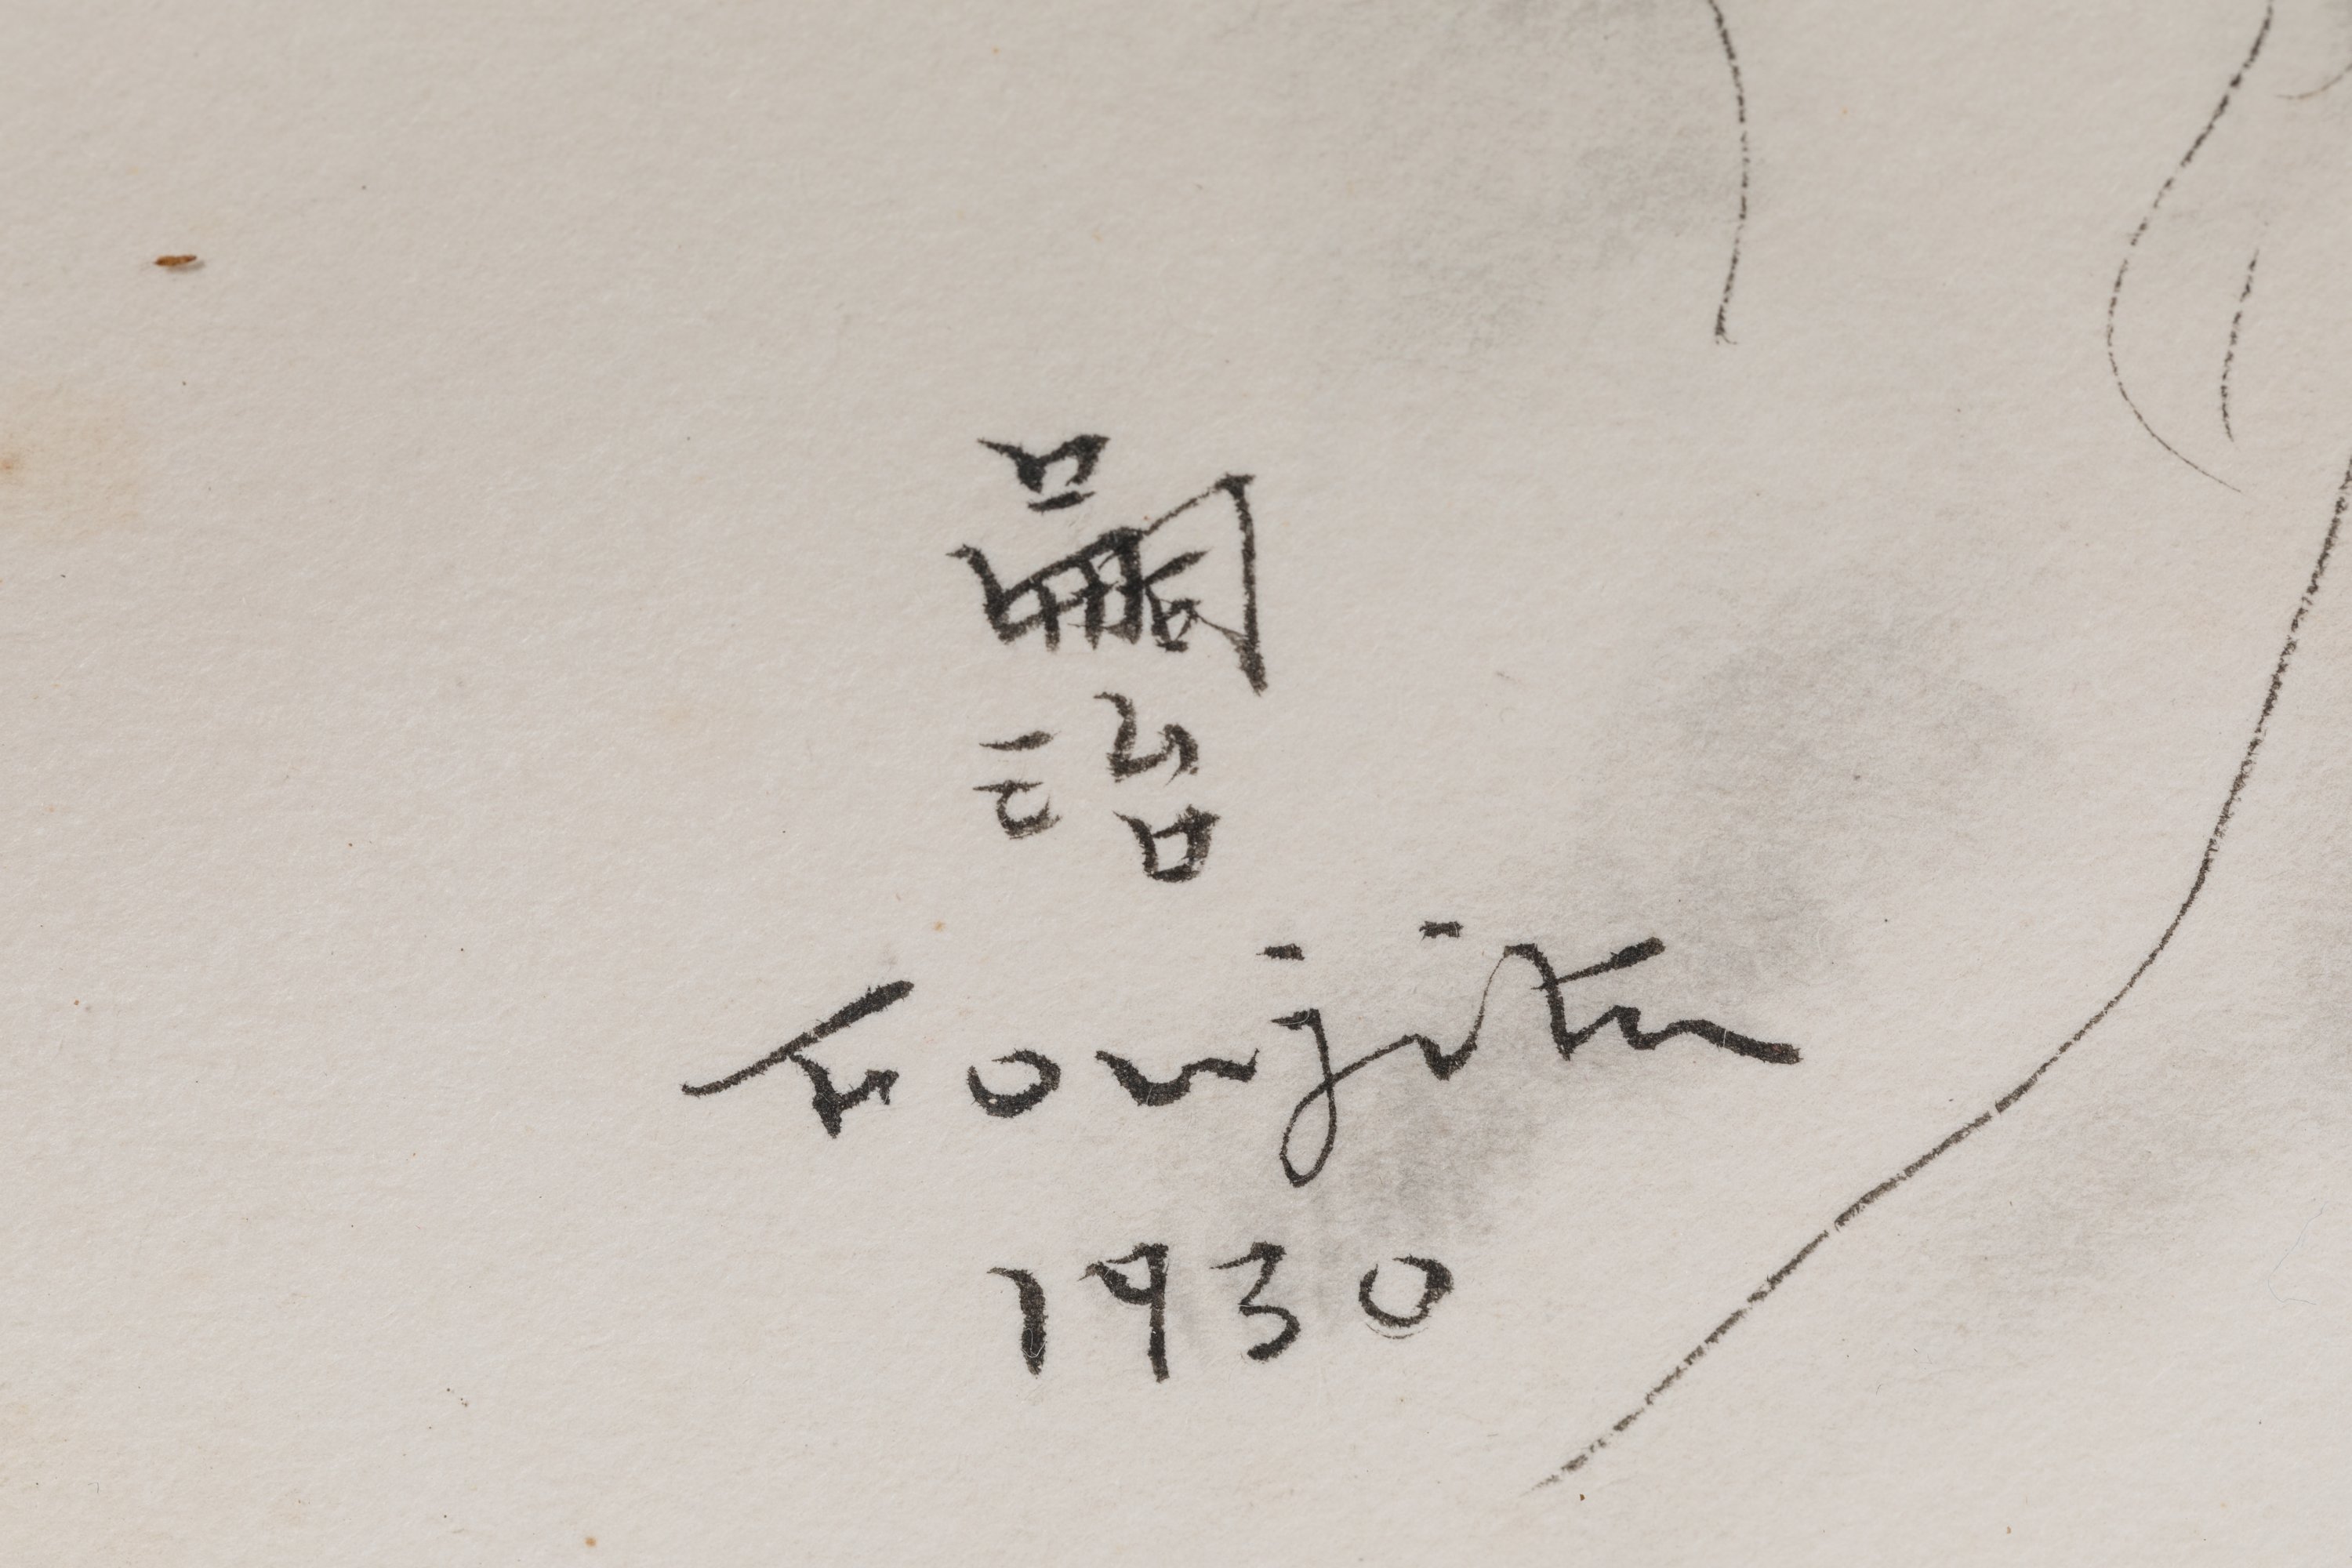 嗣
治
Foujita
1930